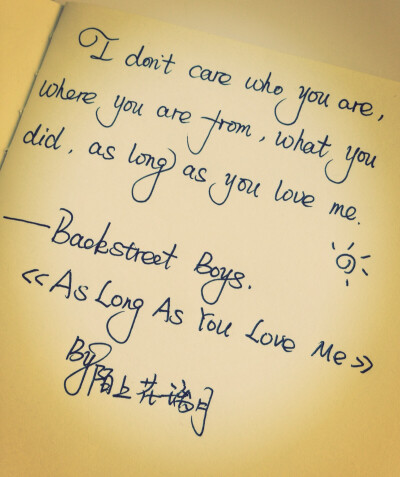 I don't care who you are,
where you are from, what you
did, as long as you love me.
—Backstreet Boys.
<<As Long As You Love Me>>
By陌上花